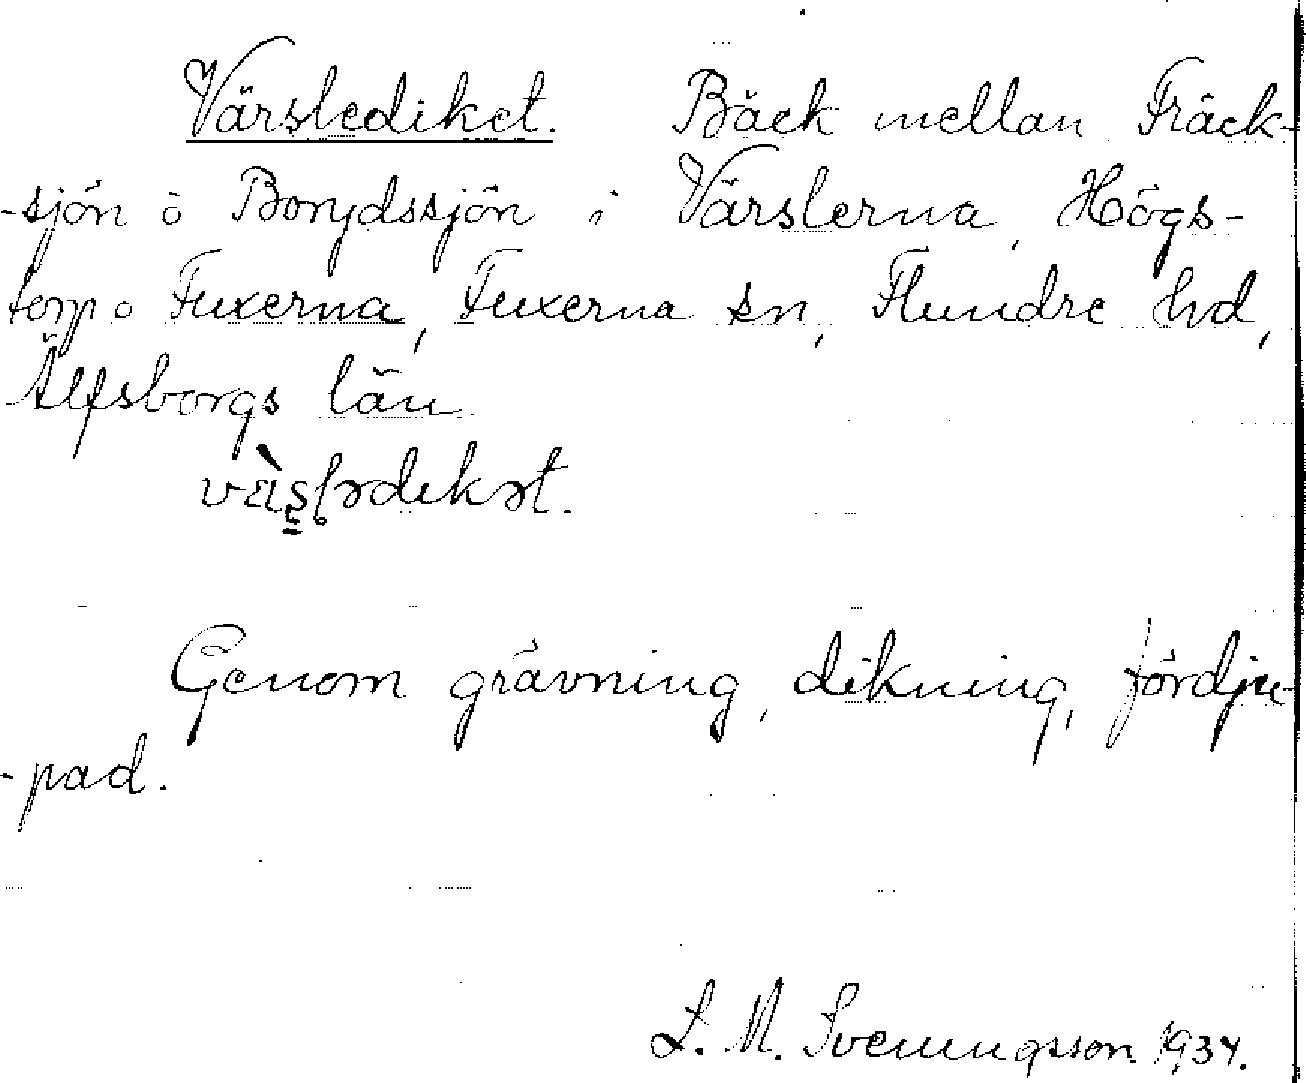 Värslediket. Bäck mellan Fräck-
-sjön o Borydssjön i Värslerna, Högs-
torp o Fuxerna, Fuxerna sn, Flundre hd,
Älfsborgs län
Genom grävning, dikning, fördju-
-pad.
S. M. Svenungsson 1934.